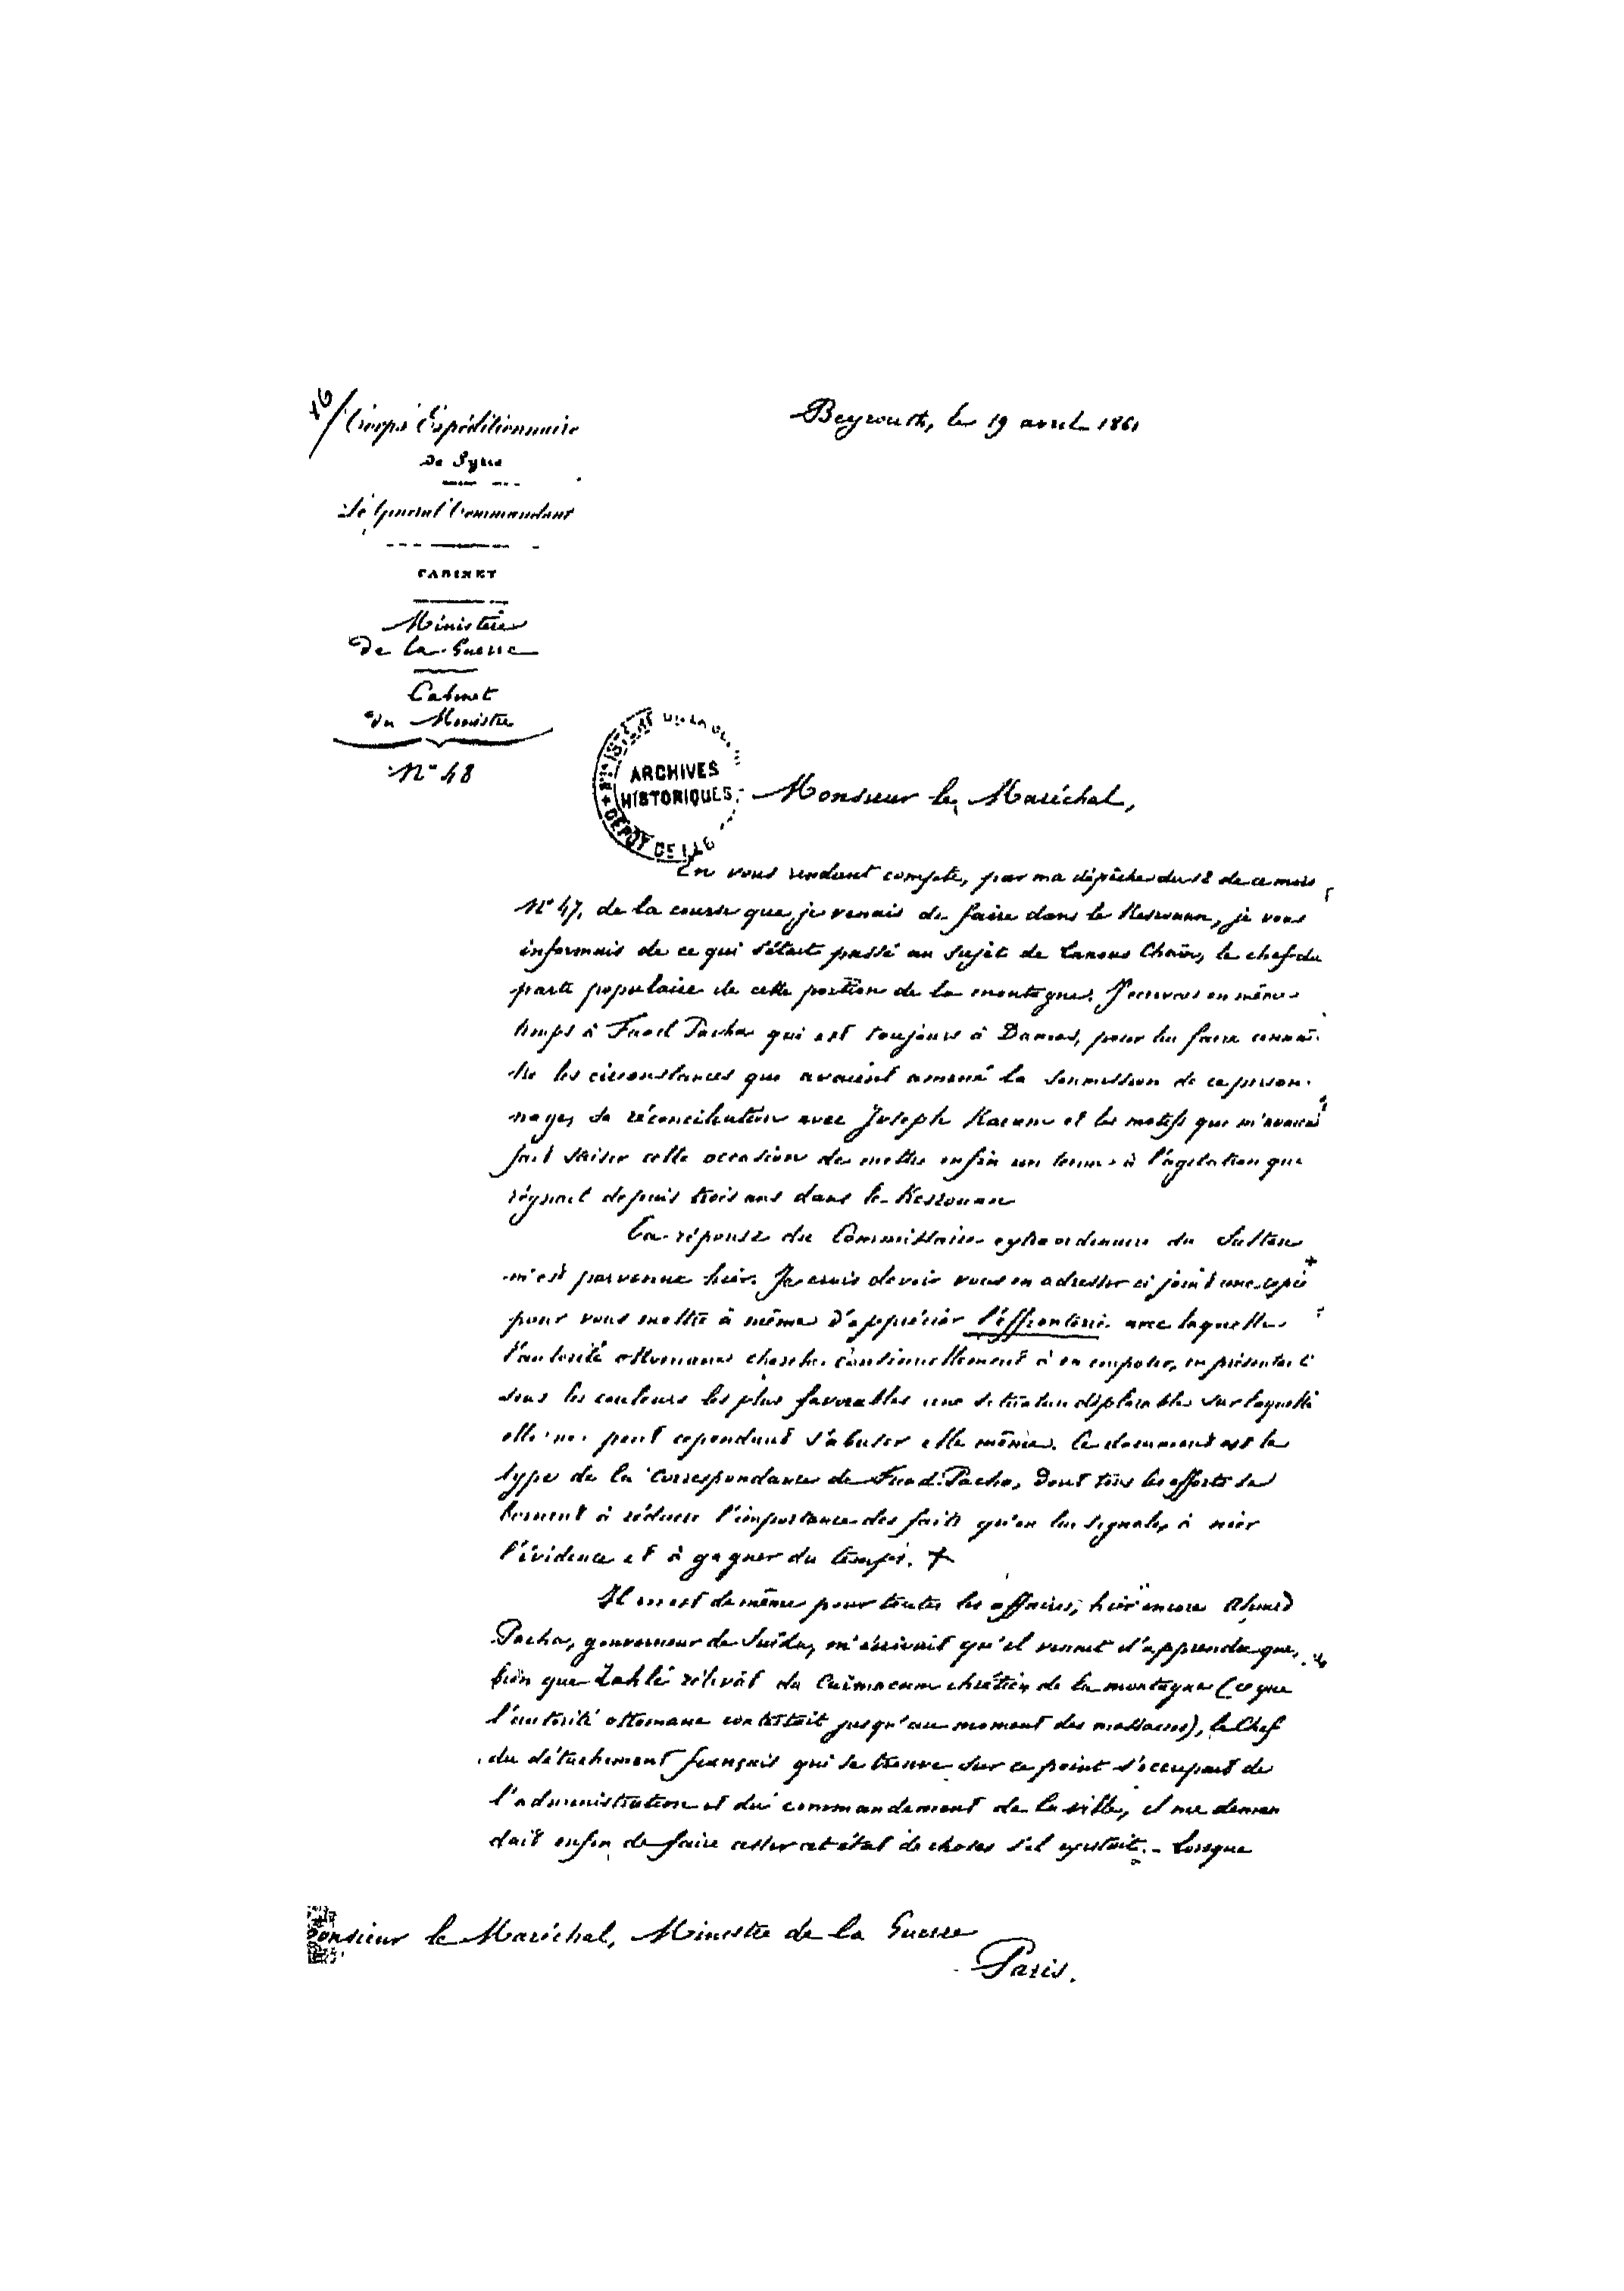 Corps Expéditionnaire
de Syrie
Le Général Commandant
CABINET
Ministère
de la Guerre
Cabinet
du Ministre
N° 48
Beyrouth, le 19 avril 1861
ARCHIVES
HISTORIQUES
DÉPÔT DE LA G
Monsieur le Maréchal,
En vous rendant compte, par ma dépêche du 18 de ce mois
N° 47, de la course que je venais de faire dans le Kesrouan, je vous
informais de ce qui s'était passé au sujet de Tanous Chaïn, le chef du
parti populaire de cette portion de la montagne. J'écrivais en même
temps à Fuad Pacha qui est toujours à Damas, pour lui faire connaî-
tre les circonstances qui avaient amené la soumission de ce person-
nage, sa réconciliation avec Joseph Karam et les motifs qui m'avaient
fait saisir cette occasion de mettre enfin un terme à l'agitation qui
régnait depuis trois ans dans le Kesrouan
La réponse du Commissaire extraordinaire du Sultan
m'est parvenue hier. Je crois devoir vous en adresser ci joint une copie
pour vous mettre à même d'apprécier l'éffronterie avec laquelle
l'autorité ottomane cherche continuellement à en imposer, en présentant
sous les couleurs les plus favorables une situation déplorable sur laquelle
elle ne peut cependant s'abuser elle même. Ce document est le
type de la correspondance de Fuad-Pacha, dont tous les efforts se
bornent à réduire l'importance des faits qu'on lui signale, à nier
l'évidence et à gagner du temps. +
Il en est de même pour toutes les affaires; hier encore Ahmed
Pacha, gouverneur de Saïda, m'écrivait qu'il venait d'apprendre que,
bien que Zahlé relevât du Caïmacam chrétien de la montagne (ce que
l'autorité ottomane contestait jusqu'au moment des massacres), le Chef
du détachement français qui se trouve sur ce point s'occupait de
l'administration et du commandement de la ville, il me deman
dait enfin de faire cesser cet état de choses s'il existait. - Lorsque
onsieur le Maréchal, Ministre de la Guerre
Paris.